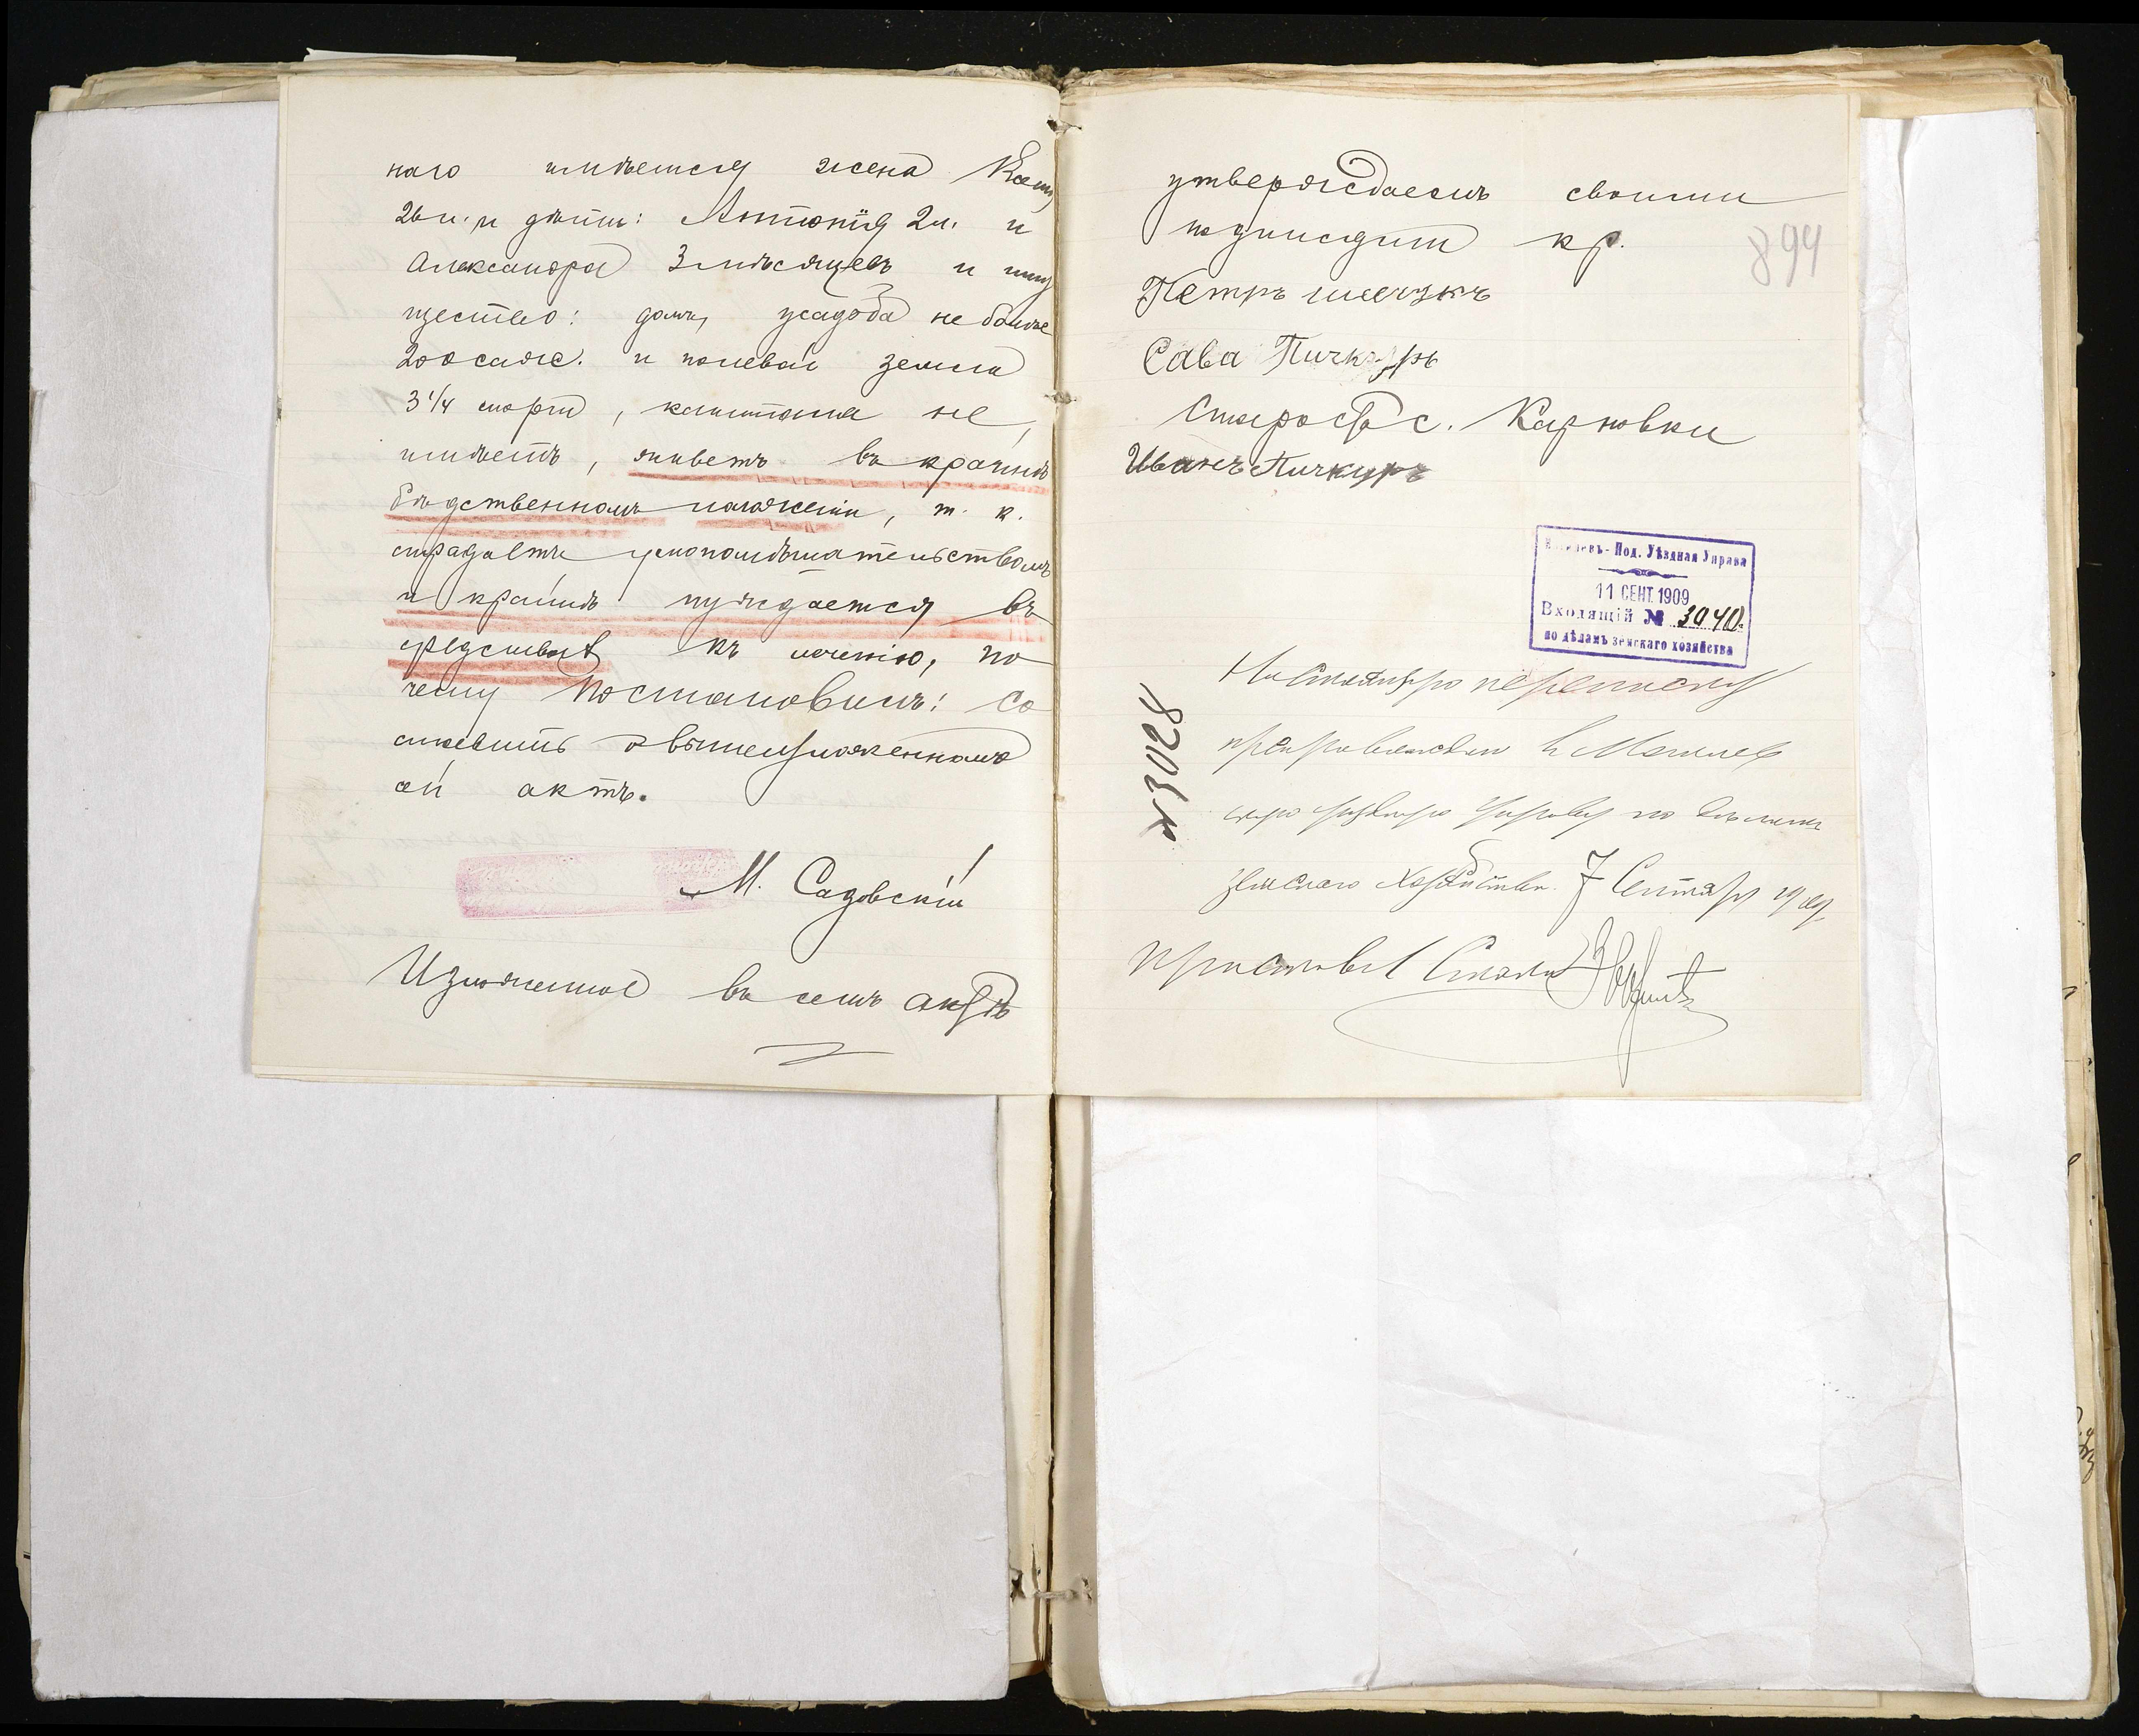 наго имѣется жена
26 л. и дѣти: Антонія 2 л. и
Александра 3 мѣсяцевъ и иму
щество: домъ, усадьба не болѣе
200 саж. и полевай земли
3 1/4 морга, капитала не
имѣетъ, живетъ въ крайнѣ
бѣдственномъ положеніи, т. к.
страдаетъ умопомѣшательствомъ
и крайнѣ нуждается въ
средствахъ къ леченію, по
чему постановилъ: со
ставить о вышеизложенномъ
сей актъ.
М. Садовскій
Изложенное въ семъ актѣ
утверждаемъ своими
подписями кр.
894
Петръ
Сава Пичкуръ
Староста с. Карповки
Иванъ Пичкуръ
Под. Уѣздная Управа
11 СЕНТ. 1909
Входящій № 3040
по дѣламъ земскаго хозяйства
№ 3028
Настоящую переписку
препровождаю въ Могилев
скую уѣздную Управу по дѣламъ
земскаго хозяйства. 7 Сентября 1909 г.
Приставъ 1 Стана